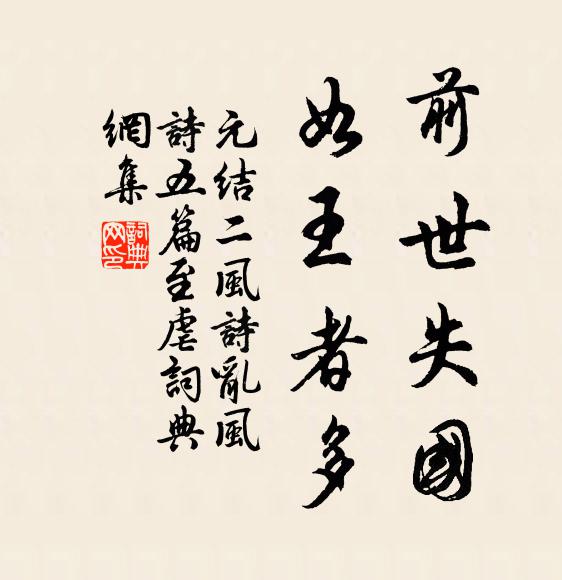 前世失國
如王者多
元結二風詩亂風
詩五篇至虐詞典
網集
詞典
网印